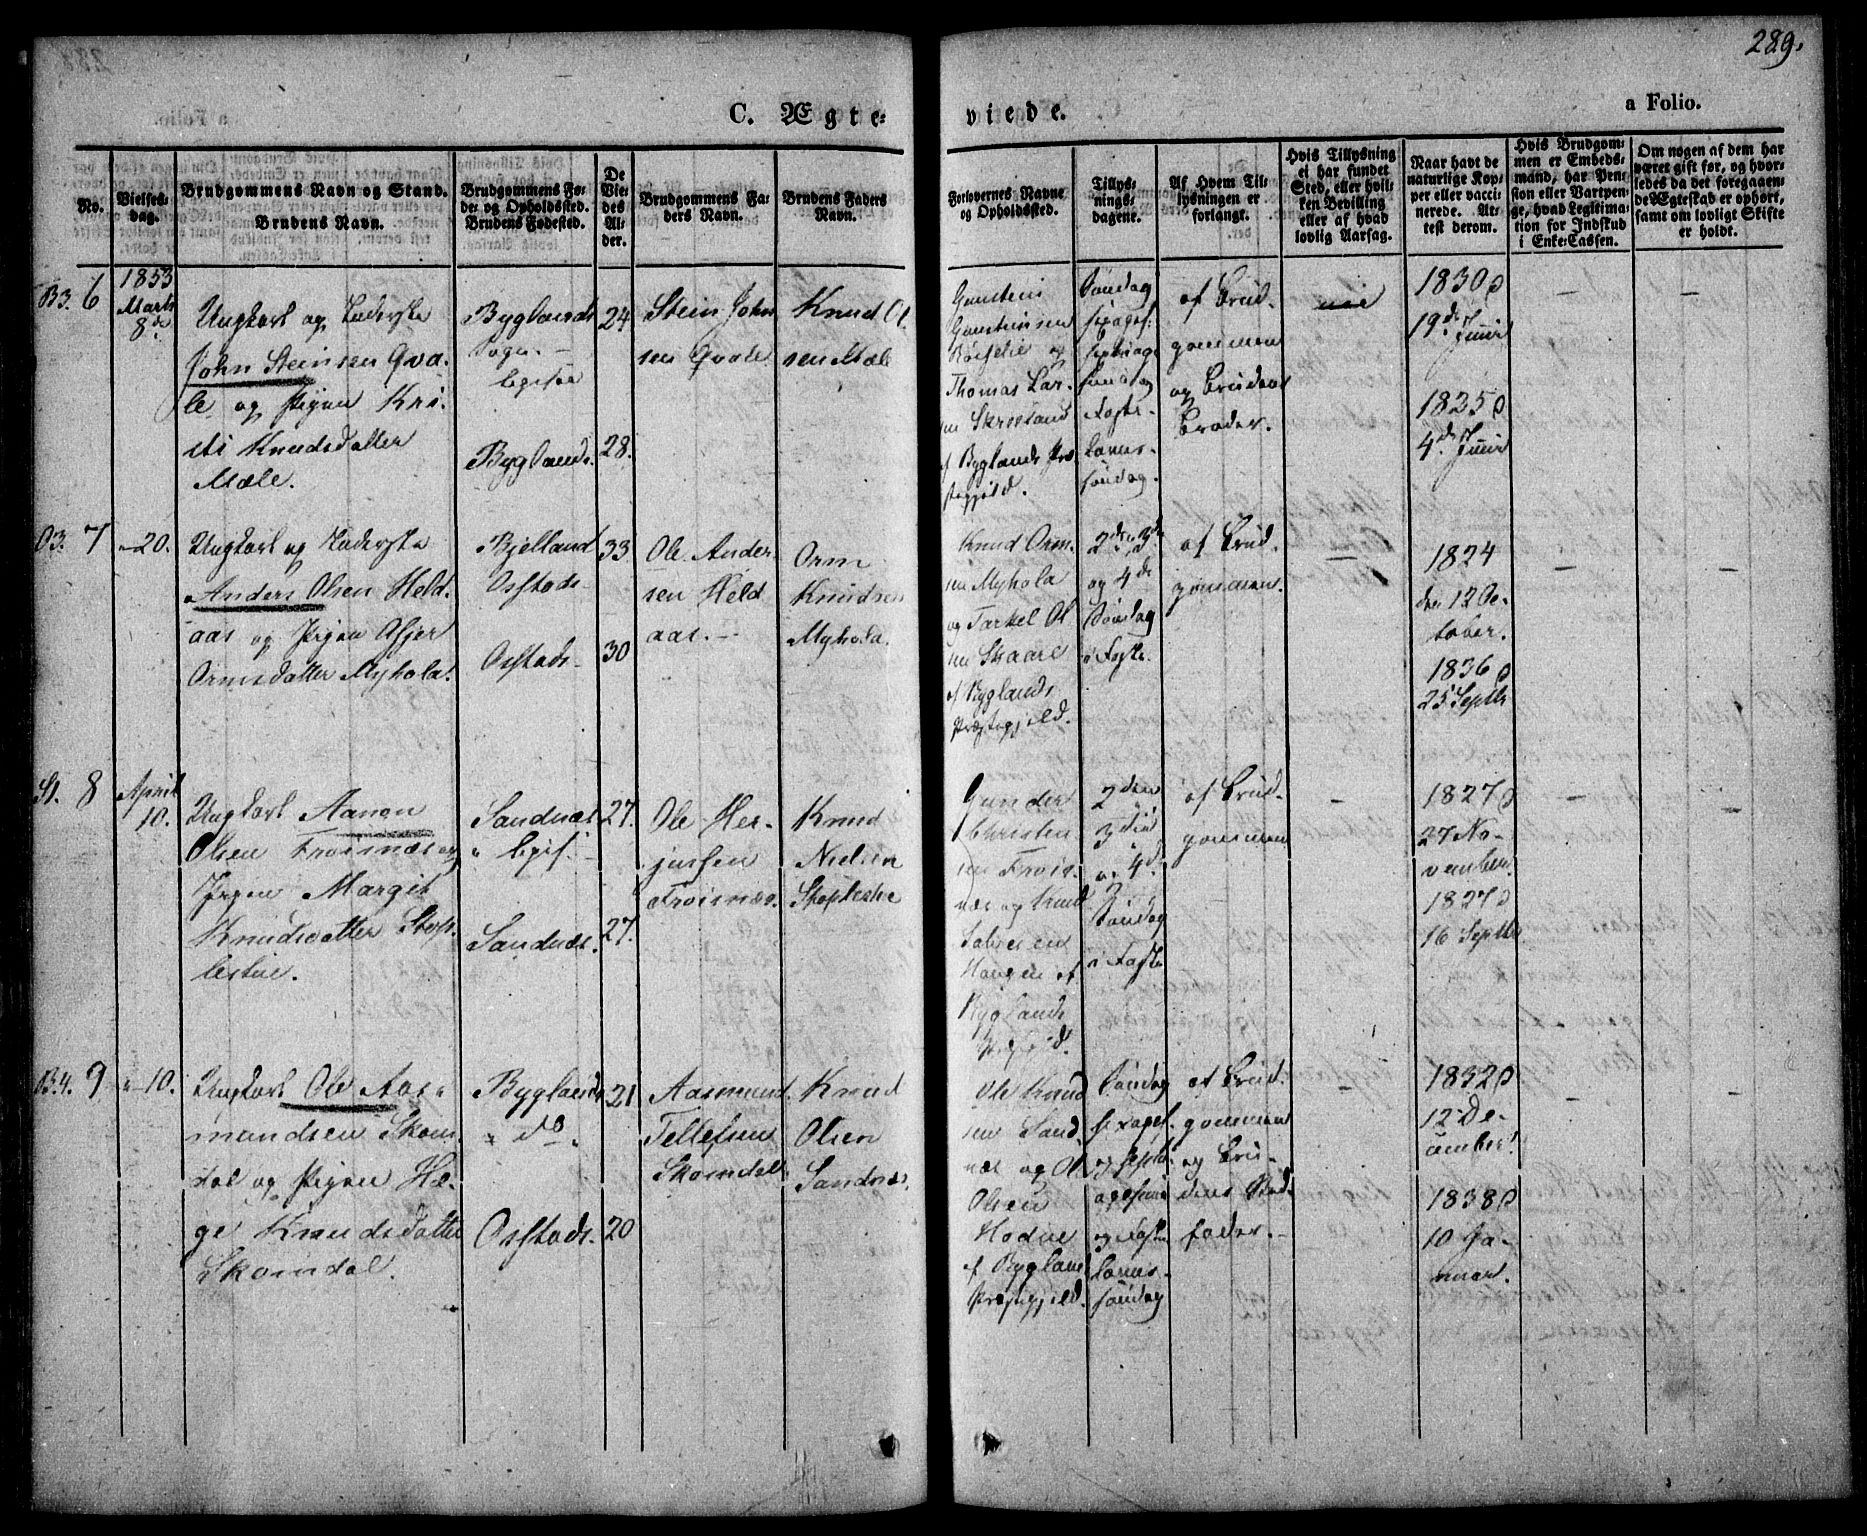 289.
C. Ægte-
viede.
a Folio.
No.
Vielses-
dag.
Brudgommens Navn og Stand.
Brudens Navn.
Brudgommens Fø-
de- og Opholdssted.
Brudens Fødested.
De
Vie-
des
Al-
der.
Brudgommens Fa-
ders Navn.
Brudens Faders
Navn.
Forlovernes Navne
og Opholdssted.
Tillys-
nings-
dagene.
Af Hvem Til-
lysningen er
forlangt.
Hvis Tillysning
ei har fundet
Sted, eller hvil-
ken Bevilling
eller af hvad
lovlig Aarsag.
Naar havt de
naturlige Kop-
per eller vacci-
nerede. At-
test derom.
Hvis Brudgom-
men er Embeds-
mand, har Pen-
sion eller Vartpen-
ge, hvad Legitima-
tion for Indskud
i Enke-Cassen.
Om nogen af dem har
været gift før, og hvor-
ledes da det foregaaen-
de Ægteskab er ophørt,
samt om lovligt Skifte
er holdt.
B3. 6
1853
Marts
8de
Ungkarl og
John Steinsen Qva-
le og Pigen Kri-
sti Knudsdatter
Mæle.
Byglands
Sogn
Byglands.
24
28.
Stein John
sen Qvale
Knud Ol
sen Mæle
Gunstein
Gunsteinsen
og
Thomas Lar-
sen Skreeland
af Byglands Præ
stegjeld.
Søndag
Faste-
lavns-
søndag.
af Brud-
gommen
og Brudens
Broder.
1830
19de Juni
1825
4de Juni
O3. 7
" 20.
Ungkarl og
Anders Olsen Held-
aas og Pigen Asjer
Ormsdatter Myhola.
Bjelland
Osstads
Osstads
33
30
Ole Ander
sen Held
aas.
Orm
Knudsen
Myhola.
Knud Orm-
sen Myhola
og Tarkel Ol
sen Skaare
af Byglands
Præstegjeld.
2den 3die
og 4de
Søndag
i Faste.
af Brud-
gommen.
1824
den 12 Oc-
tober.
1836
25 Septbr
St. 8
April
10.
Ungkarl Aanon
Olsen Froisnæs og
Pigen Margit
Knudsdatter Stop-
lestue.
Sandnæs
Sandnæs.
27.
27.
Ole Her-
jussen
Froisnæs.
Knud
Nielsen
Stoplestue
Gunder
Christen
sen Frois-
næs og Knud
Salvesen
Haugen af
Byglands
Præstegjeld.
2den
3die
og 4de
Søndag
i Faste
af Brud-
gommen
1827
27 No-
vember
1827
16 Septbr
B4. 9
" 10.
Ungkarl Ole Aas-
mundsen Skom-
dal og Pigen Hæ-
ge Knudsdatter
Skomdal.
Byglands
" do "
Osstads.
21
20
Aasmund
Tellefsen
Skomdal
Knud
Olsen
Sandnæs.
Ole Knud
sen Sand-
næs og Ol
Olsen
Hodne
af Bygland
Præstegjeld.
Søndag
og Faste
lavns-
søndag
af Brud-
gommen
og Bru-
dens Sted-
fader.
1832
12 De-
cember
1838
10 Ja-
nuar.